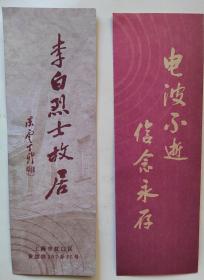 李白烈士故居
陈云题
上海市虹口区
黄渡路107弄15号
电波不逝
信念永存